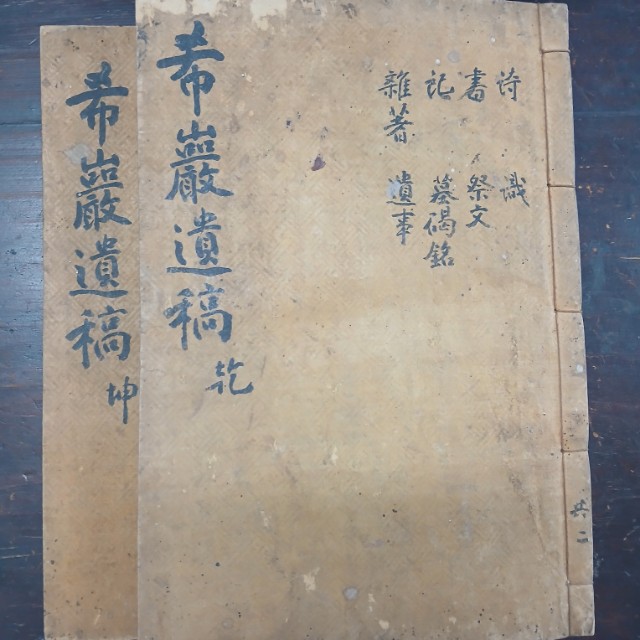 詩 識
書 祭文
記 墓碣銘
雜著 遺事
希巖遺稿 乾
希巖遺稿 坤
共二